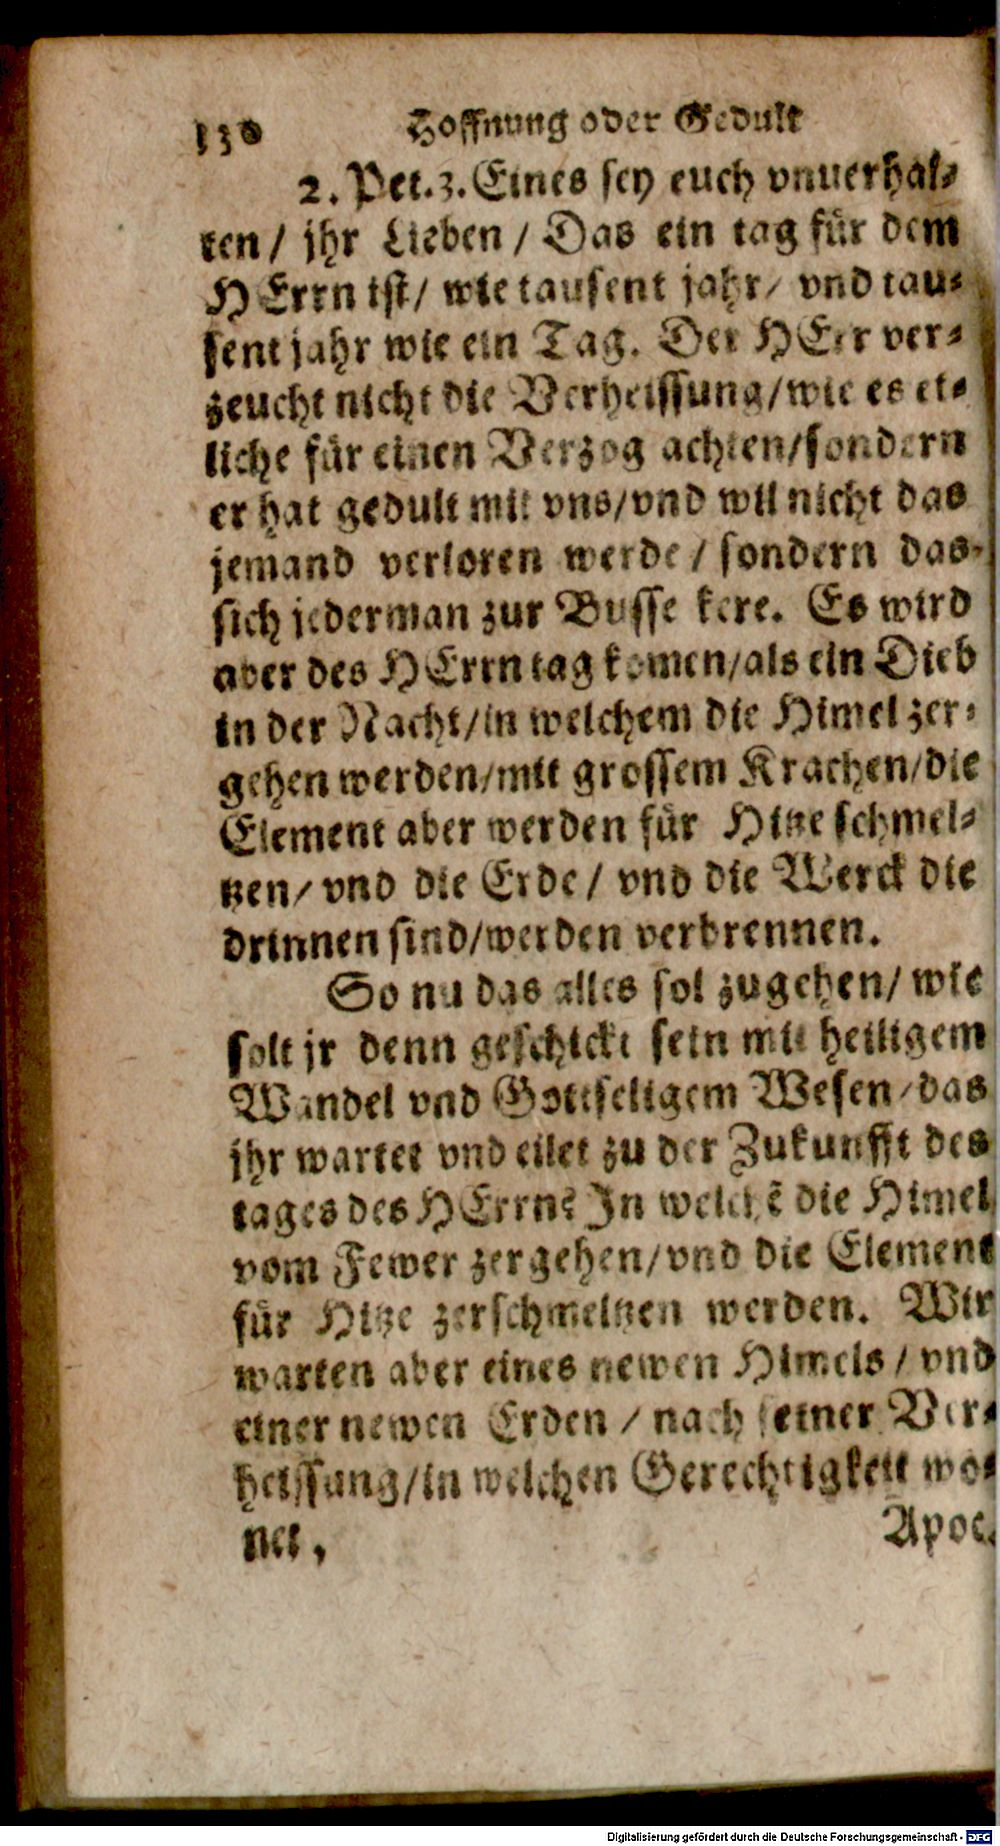 130 Hoffnung oder Gedult
2. Pet. 3. Eines sey euch vnuerhal-
ten / jhr Lieben / Das ein tag für dem
HErrn ist / wie tausent jahr / vnd tau-
sent jahr wie ein Tag. Der HErr ver-
zeucht nicht die Verheissung / wie es et-
liche für einen Verzog achten / sondern
er hat gedult mit vns / vnd wil nicht das
jemand verloren werde / sondern das
sich jederman zur Busse kere. Es wird
aber des HErrn tag komen / als ein Dieb
in der Nacht / in welchem die Himel zer-
gehen werden / mit grossem Krachen / die
Element aber werden für Hitze schmel-
tzen / vnd die Erde / vnd die Werck die
drinnen sind / werden verbrennen.
So nu das alles sol zugehen / wie
solt jr denn geschickt sein mit heiligem
Wandel vnd Gottseligem Wesen / das
jhr wartet vnd eilet zu der Zukunfft des
tages des HErrn? In welchē die Himel
vom Fewer zergehen / vnd die Element
für Hitze zerschmeltzen werden. Wir
warten aber eines newen Himels / vnd
einer newen Erden / nach seiner Ver-
heissung / in welchen Gerechtigkeit wo-
net.
Apoc.
Digitalisierung gefördert durch die Deutsche Forschungsgemeinschaft - DFG